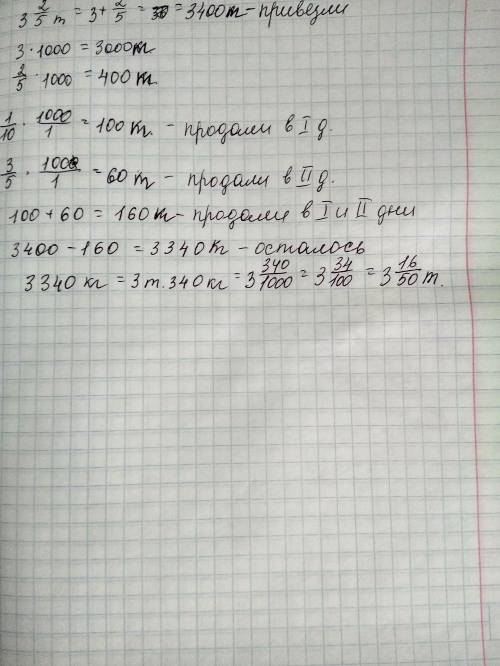 3 2/5 т = 3 + 2/5 = = 3400 т - привезли
3 · 1000 = 3000 т
2/5 · 1000 = 400 т
1/10 · 1000/1 = 100 кг - продали в I д.
3/5 · 1000/1 = 60 т - продали в II д.
100 + 60 = 160 т - продали в I и II дни
3400 - 160 = 3340 кг - осталось
3340 кг = 3 т. 340 кг = 3 340/1000 = 3 34/100 = 3 16/50 т.